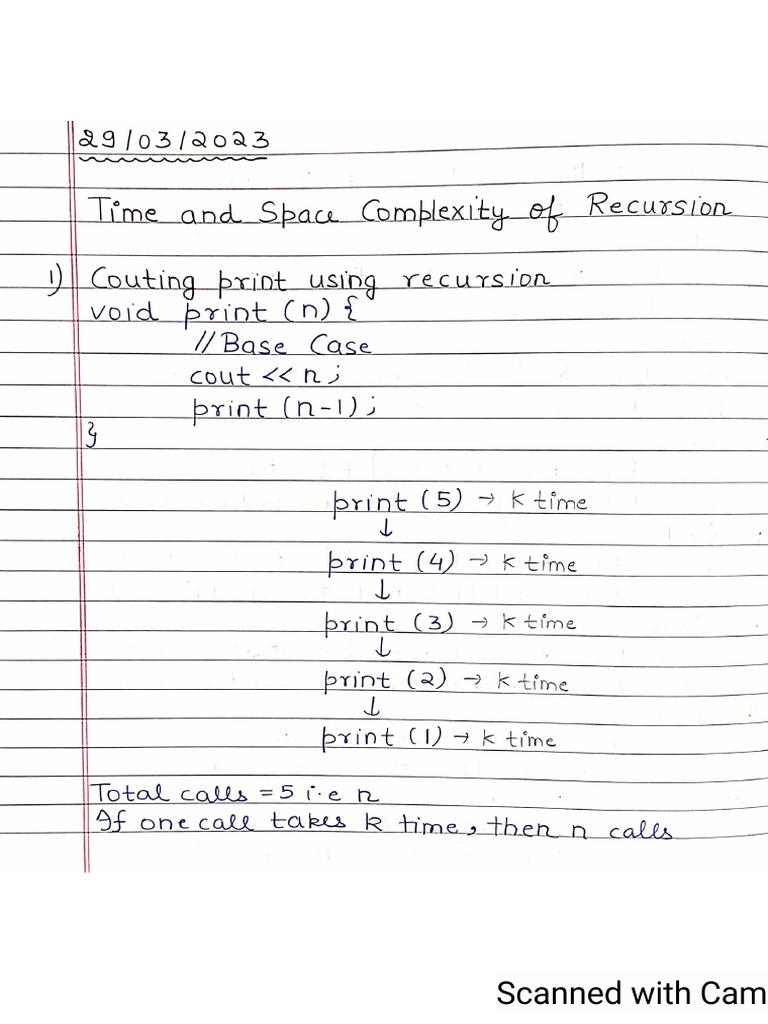 29/03/2023
Time and Space Complexity of Recursion
1) Couting print using recursion
void print (n) {
//Base Case
cout << n;
print (n-1);
}
print (5) → k time
↓
print (4) → k time
↓
print (3) → k time
↓
print (2) → k time
↓
print (1) → k time
Total calls = 5 i.e n
If one call takes k time, then n calls
Scanned with Cam